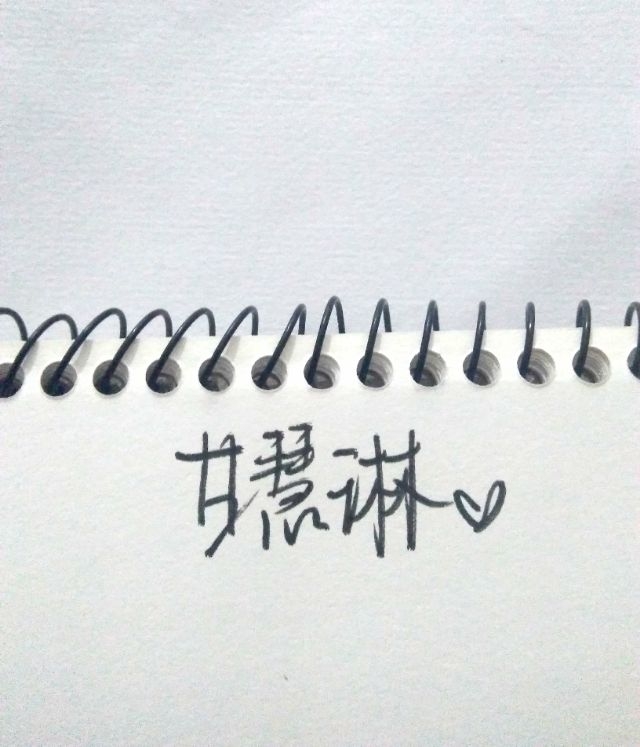 甘慧琳♡